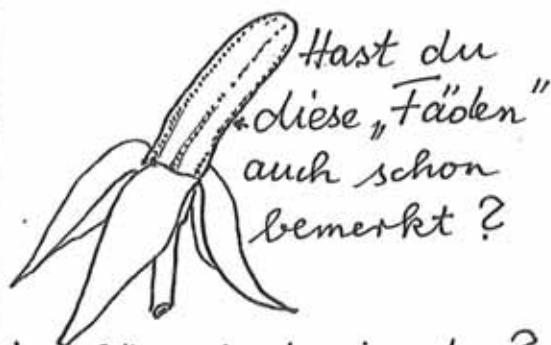 Hast du
diese „Fäden“
auch schon
bemerkt?